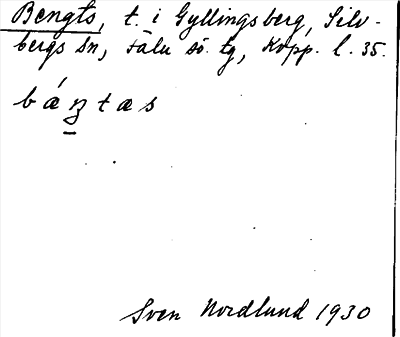 Bengts, t. i Gyllingsberg, Silv-
bergs sn, Falu sö. tg, Kopp. l. 35.
bá𝑛̱tæs
Sven Nordlund 1930